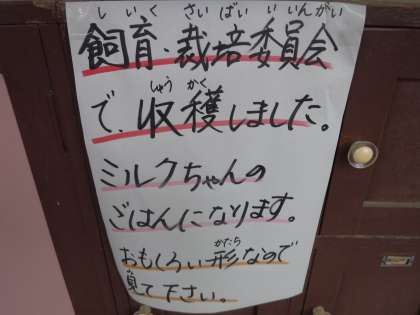 しいく さいばい いいんかい
飼育・栽培委員会
しゅう かく
で、収穫しました。
ミルクちゃんの
ごはんになります。
かたち
おもしろい形なので
見て下さい。